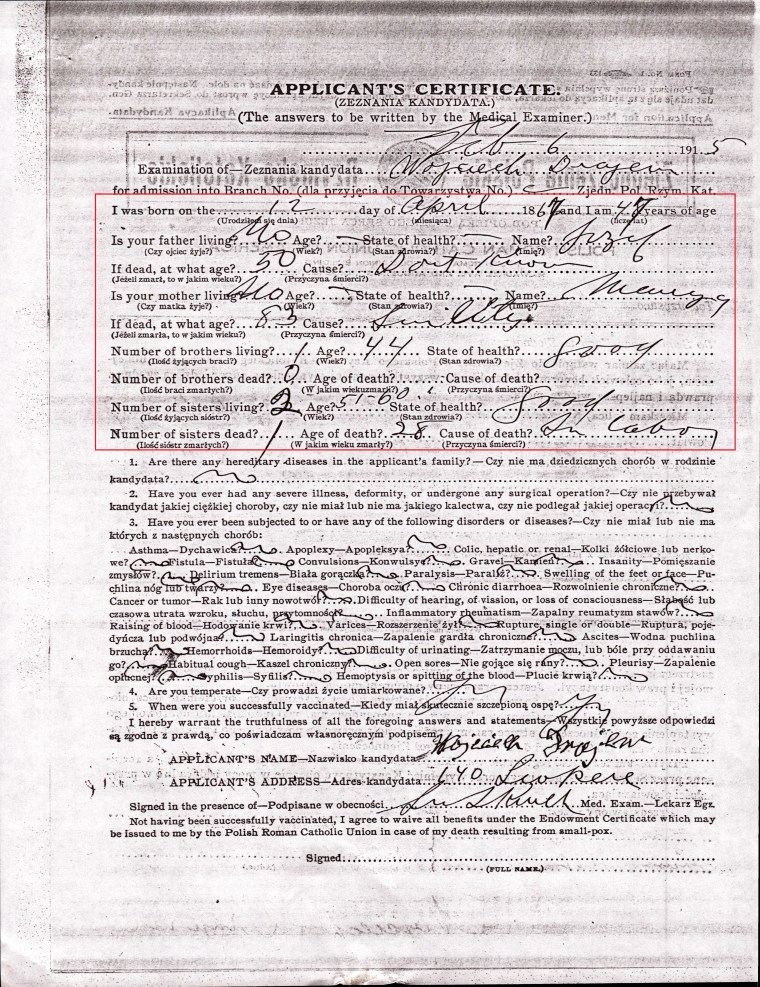 APPLICANT'S CERTIFICATE.
(ZEZNANIA KANDYDATA.)
(The answers to be written by the Medical Examiner.)
Feb 6 1915
Examination of—Zeznania kandydata Wojciech
for admission into Branch No. (dla przyjęcia do Towarzystwa No.) Zjedn. Pol. Rzym. Kat.
I was born on the 12 day of April 1867 and I am 47 years of age
(Urodziłem się dnia) (miesiąca) (liczę lat)
Is your father living? No Age? — State of health? — Name? Jozef
(Czy ojciec żyje?) (Wiek?) (Stan zdrowia?) (Imię?)
If dead, at what age? 50 Cause? Dont Know
(Jeżeli zmarł, to w jakim wieku?) (Przyczyna śmierci?)
Is your mother living? No Age? — State of health? — Name?
(Czy matka żyje?) (Wiek?) (Stan zdrowia?) (Imię?)
If dead, at what age? 85 Cause?
(Jeżeli zmarł, to w jakim wieku?) (Przyczyna śmierci?)
Number of brothers living? 1 Age? 44 State of health? good
(Ilość żyjących braci?) (Wiek?) (Stan zdrowia?)
Number of brothers dead? 0 Age of death? Cause of death?
(Ilość braci zmarłych?) (W jakim wieku zmarł?) (Przyczyna śmierci?)
Number of sisters living? 2 Age? 51-60 State of health? good
(Ilość żyjących sióstr?) (Wiek?) (Stan zdrowia?)
Number of sisters dead? 1 Age of death? 28 Cause of death? In labor
(Ilość sióstr zmarłych?) (W jakim wieku zmarły?) (Przyczyna śmierci?)
1. Are there any hereditary diseases in the applicant's family?—Czy nie ma dziedzicznych chorób w rodzinie
kandydata? no
2. Have you ever had any severe illness, deformity, or undergone any surgical operation?—Czy nie przebywał
kandydat jakiej ciężkiej choroby, czy nie miał lub nie ma jakiego kalectwa, czy nie podlegał jakiej operacyi? no
3. Have you ever been subjected to or have any of the following disorders or diseases?—Czy nie miał lub nie ma
których z następnych chorób:
Asthma—Dychawica? no Apoplexy—Apopleksya? no Colic, hepatic or renal—Kolki żółciowe lub nerko-
we? no Fistula—Fistuła? no Convulsions—Konwulsye? no Gravel—Kamień? no Insanity—Pomięszanie
zmysłów? no Delirium tremens—Biała gorączka? no Paralysis—Paraliż? no Swelling of the feet or face—Pu-
chlina nóg lub twarzy? no Eye diseases—Choroba oczu? no Chronic diarrhoea—Rozwolnienie chroniczne? no
Cancer or tumor—Rak lub inny nowotwór? no Difficulty of hearing, of vission, or loss of consciousness—Słabość lub
czasowa utrata wzroku, słuchu, przytomności? no Inflammatory rheumatism—Zapalny reumatyzm stawów? no
Raising of blood—Hodowanie krwi? no Varices—Rozszerzenie żył? no Rupture, single or double—Ruptura, poje-
dyńcza lub podwójna? no Laringitis chronica—Zapalenie gardła chroniczne? no Ascites—Wodna puchlina
brzucha? no Hemorrhoids—Hemoroidy? no Difficulty of urinating—Zatrzymanie moczu, lub bóle przy oddawaniu
go? no Habitual cough—Kaszel chroniczny? no Open sores—Nie gojące się rany? no Pleurisy—Zapalenie
opłucnej? no Syphilis—Syfilis? no Hemoptysis or spitting of the blood—Plucie krwią? no
4. Are you temperate—Czy prowadzi życie umiarkowane?
5. When were you successfully vaccinated—Kiedy miał skutecznie szczepioną ospę?
I hereby warrant the truthfulness of all the foregoing answers and statements—Wszystkie powyższe odpowiedzi
są zgodne z prawdą, co poświadczam własnoręcznym podpisem.
APPLICANT'S NAME—Nazwisko kandydata Wojciech
APPLICANT'S ADDRESS—Adres kandydata 640
Signed in the presence of—Podpisane w obecności Med. Exam.—Lekarz Egz.
Not having been successfully vaccinated, I agree to waive all benefits under the Endowment Certificate which may
be issued to me by the Polish Roman Catholic Union in case of my death resulting from small-pox.
Signed
(FULL NAME.)